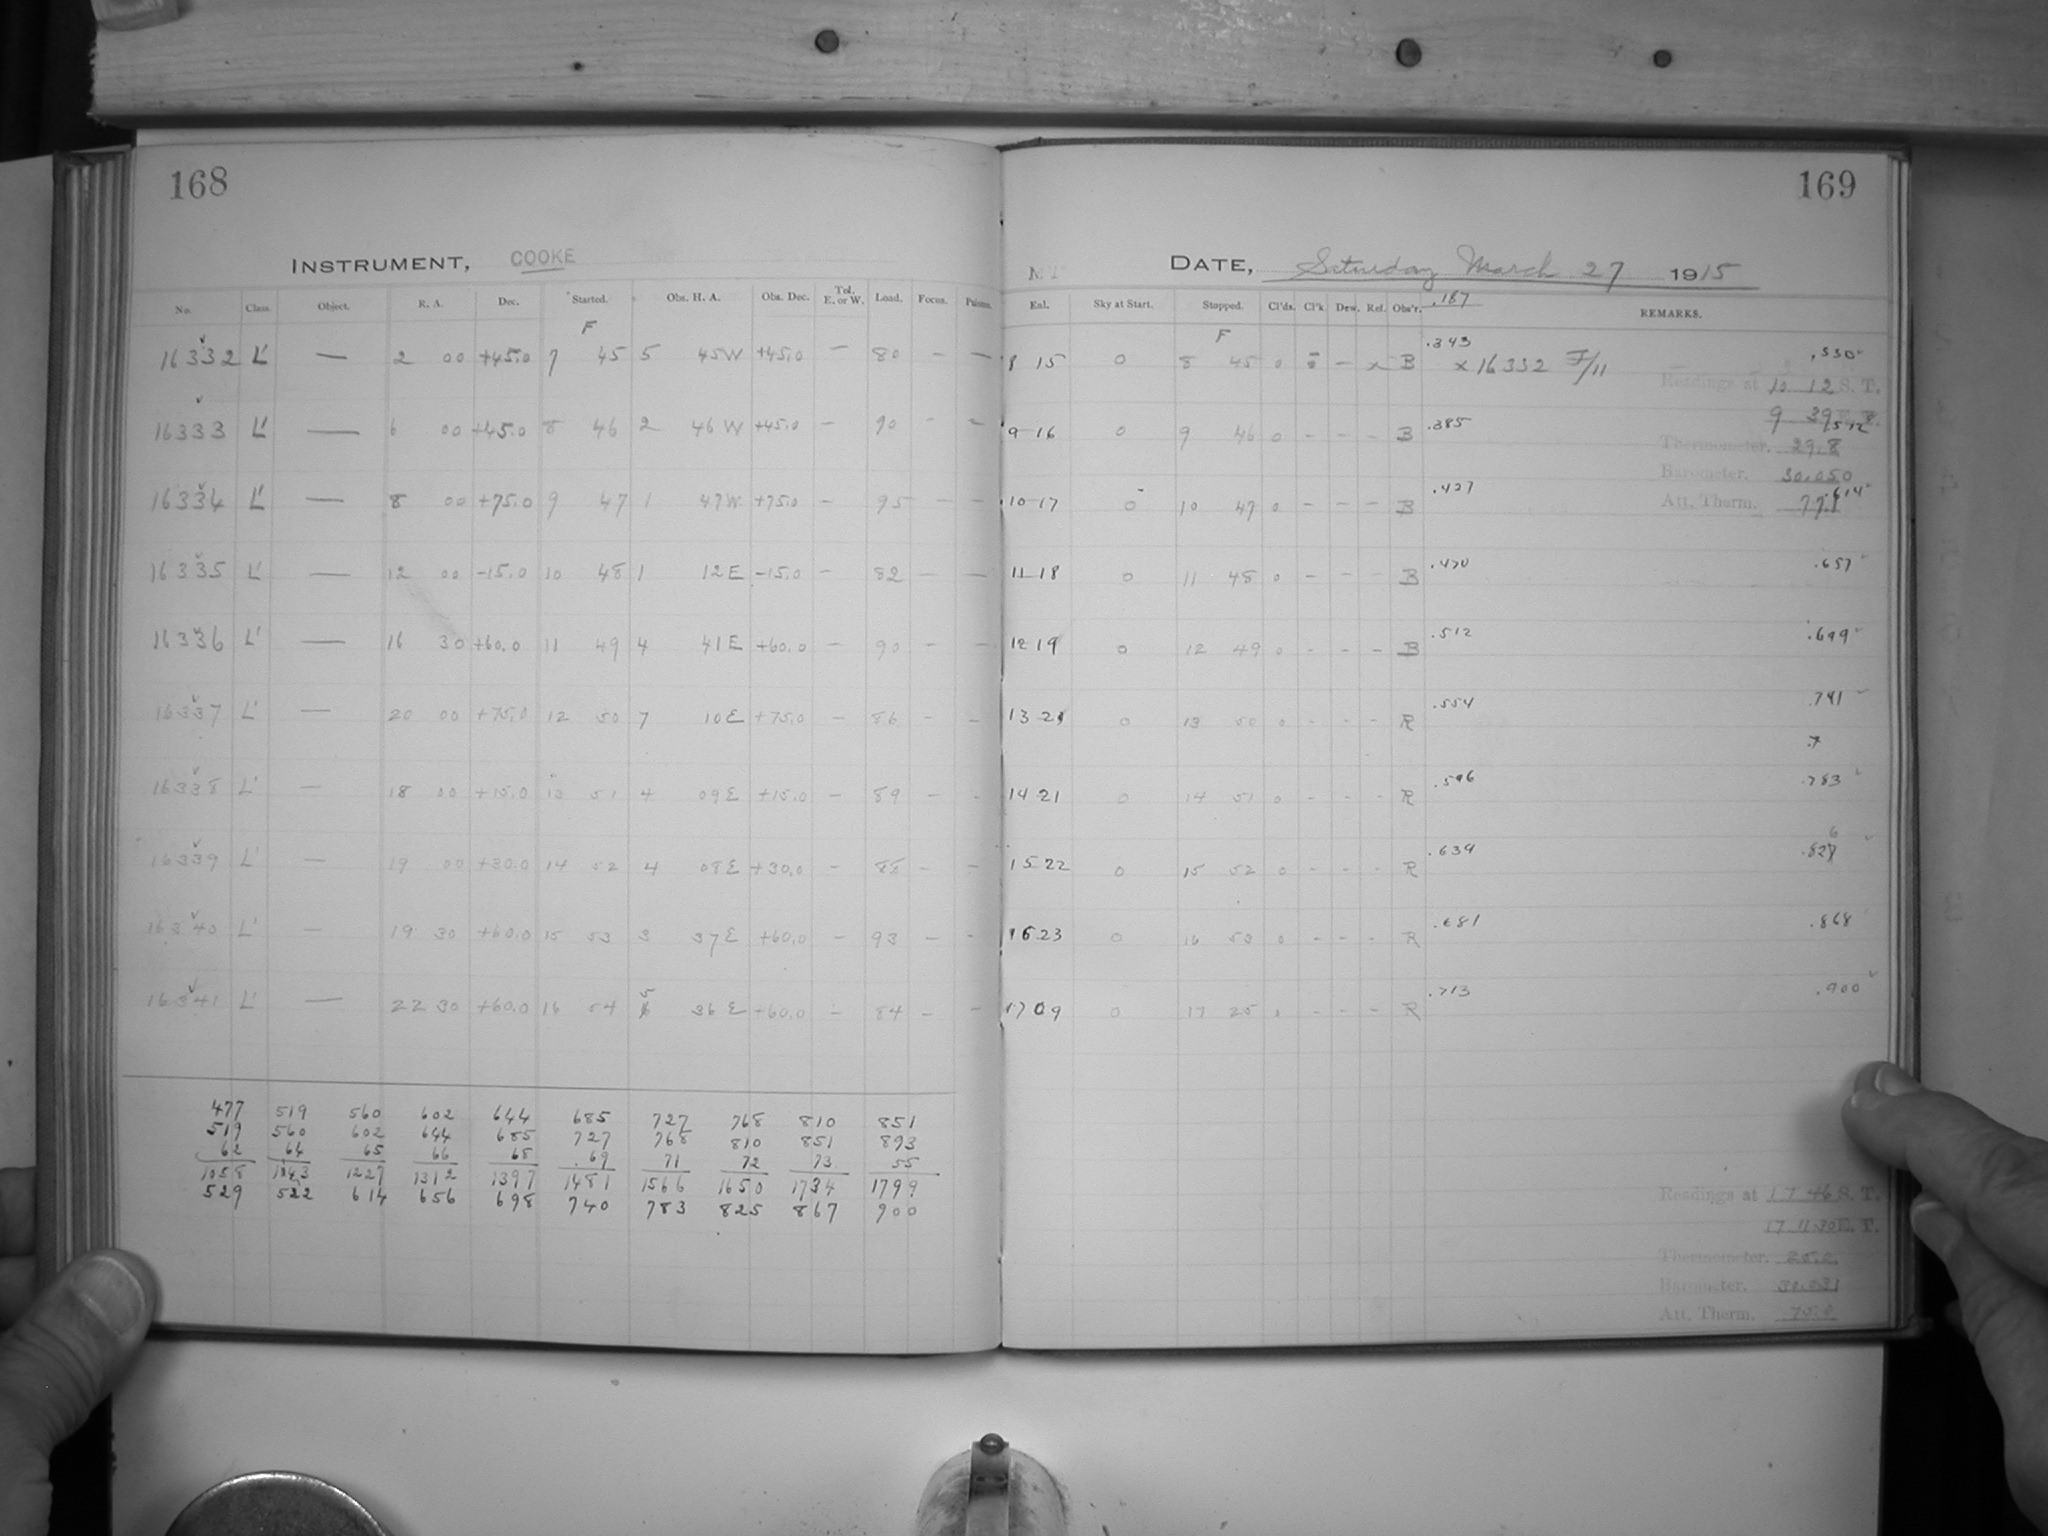 168
INSTRUMENT, COOKE
No. Class. Object. R. A. Dec. Started. Obs. H. A. Obs. Dec. Tel. E. or W. Load. Focus.
F
16332 L' — 2 00 +45.0 7 45 5 45W +45.0 — 80 — —
16333 L' — 6 00 +45.0 8 46 2 46W +45.0 — 90 — —
16334 L' — 8 00 +75.0 9 47 1 47W +75.0 — 95 — —
16335 L' — 12 00 -15.0 10 48 1 12E -15.0 — 82 — —
16336 L' — 16 30 +60.0 11 49 4 41E +60.0 — 90 — —
16337 L' — 20 00 +75.0 12 50 7 10E +75.0 — 86 — —
16338 L' — 18 00 +15.0 13 51 4 09E +15.0 — 89 — -
16339 L' — 19 00 +30.0 14 52 4 08E +30.0 — 85 — —
16340 L' — 19 30 +60.0 15 53 3 37E +60.0 — 93 — -
16341 L' — 22 30 +60.0 16 54 5 36E +60.0 — 84 — —
477 519 560 602 644 685 727 768 810 851
519 560 602 644 685 727 768 810 851 893
62 64 65 66 68 69 71 72 73 55
1058 1143 1227 1312 1397 1481 1566 1650 1734 1799
529 522 614 656 698 740 783 825 867 900
169
DATE, Saturday March 27 1915
Eql. Sky at Start. Stopped. Cl'ds. Cl'k Dew. Rel. Obs'r. .187 REMARKS.
F
8 15 0 8 45 0 - x B .343 x 16332 F/11 .530
Readings at 10 12 S. T.
9 39 E. T.
9 16 0 9 46 0 - - - B .385 .572
Thermometer. 29.8
Barometer. 30.050
10 17 0 10 47 0 - - - B .427 .614
Att. Therm. 77.1
11 18 0 11 48 0 - - - B .470 .657
12 19 0 12 49 0 - - - B .512 .699
13 21 0 13 50 0 - - - R .554 .741
.7
14 21 0 14 51 0 - - - R .596 .783
15 22 0 15 52 0 - - - R .639 .826
16 23 0 16 53 0 - - - R .681 .868
17 09 0 17 25 - - - R .713 .900
Readings at 17 46 S. T.
17 11 30 E. T.
Thermometer. 25.2
Barometer. 30.031
Att. Therm. 75.0